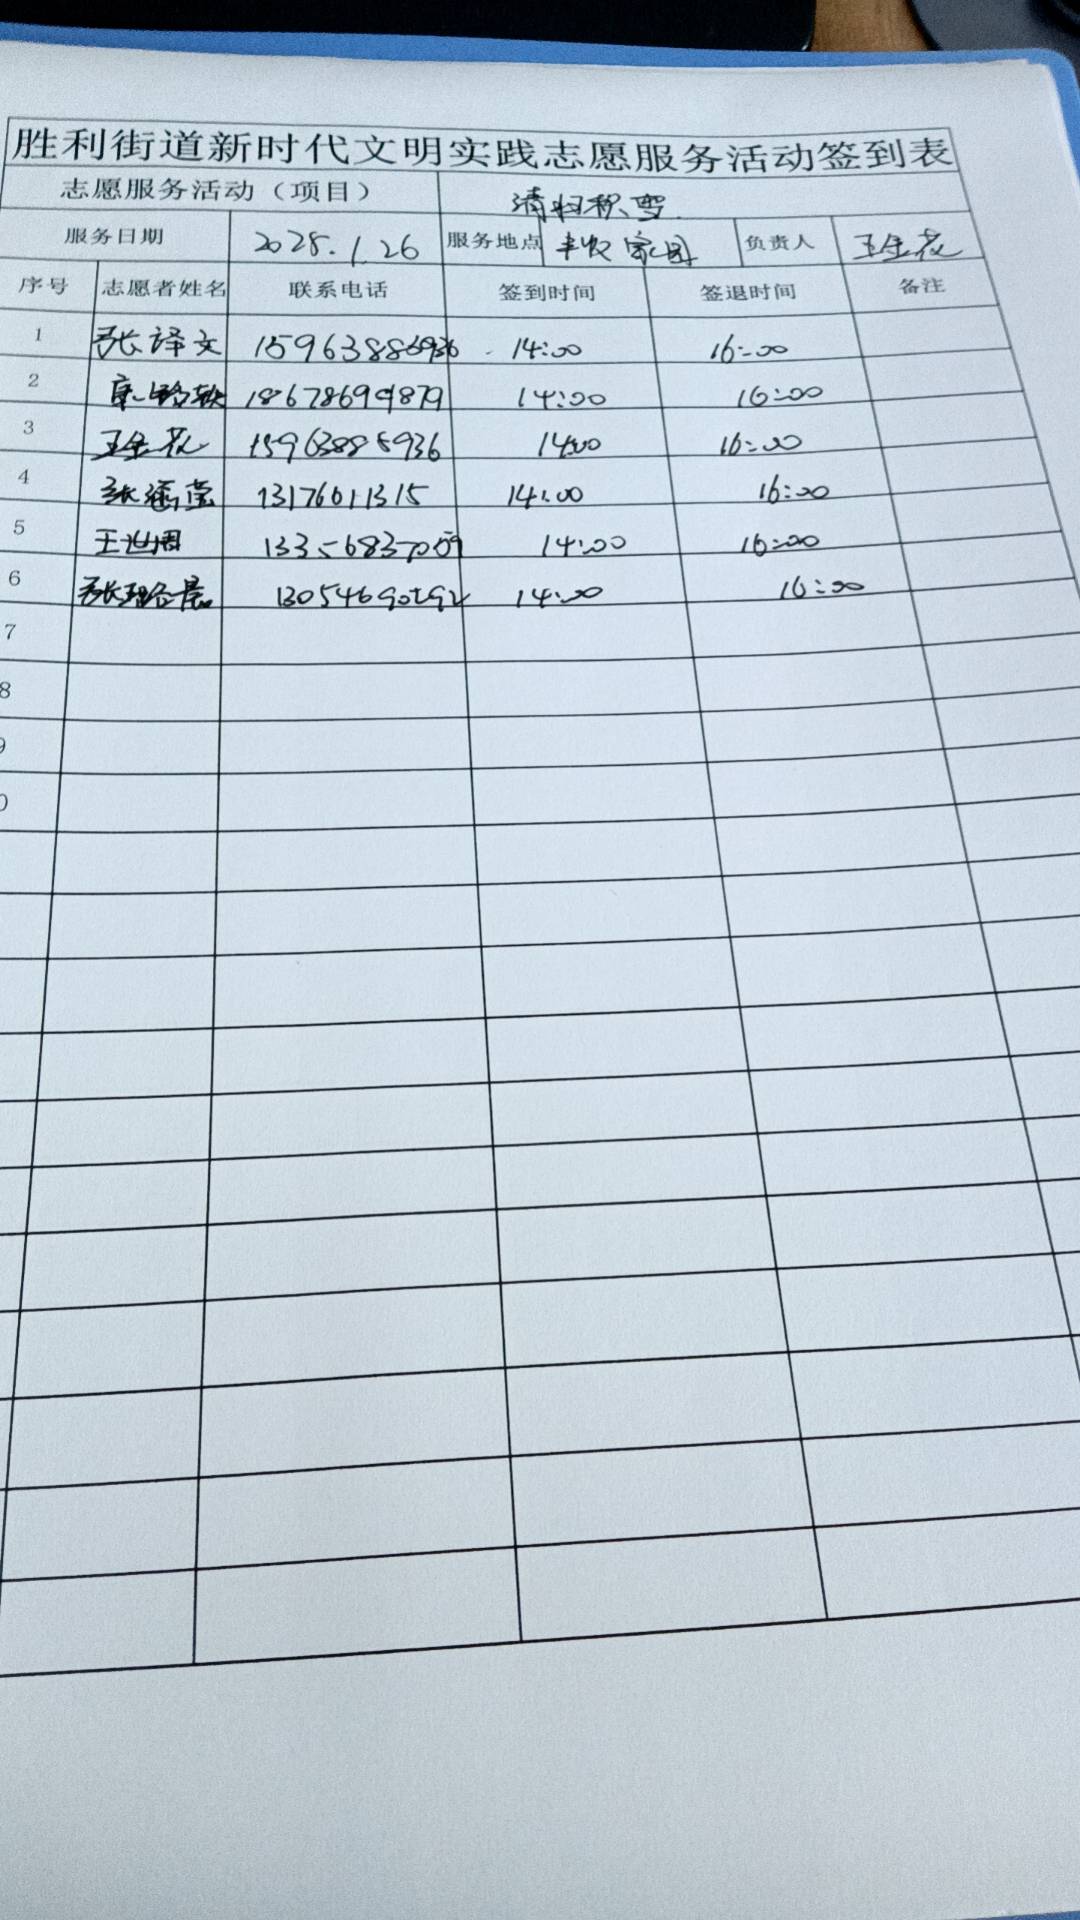 胜利街道新时代文明实践志愿服务活动签到表
志愿服务活动（项目） 清扫积雪
服务日期 2025.1.26 服务地点 丰收家园 负责人 王金花
序号 志愿者姓名 联系电话 签到时间 签退时间 备注
1 张译文 14:00 16:00
2 18678699879 14:00 16:00
3 王金花 15963885936 14:00 16:00
4 张 13176011315 14:00 16:00
5 王 13356837059 14:00 16:00
6 张 14:00 16:00
7
8
9
0